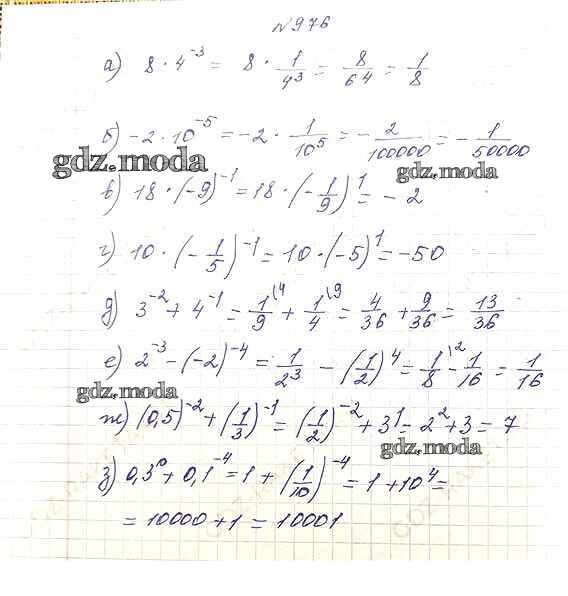 №976
а) 8 · 4⁻³ = 8 · 1/4³ = 8/64 = 1/8
б) -2 · 10⁻⁵ = -2 · 1/10⁵ = - 2/100000 = - 1/50000
gdz.moda
gdz.moda
в) 18 · (-9)⁻¹ = 18 · (-1/9)¹ = - 2
г) 10 · (-1/5)⁻¹ = 10 · (-5)¹ = -50
д) 3⁻² + 4⁻¹ = 1/9\4 + 1/4\9 = 4/36 + 9/36 = 13/36
е) 2⁻³ - (-2)⁻⁴ = 1/2³ - (1/2)⁴ = 1/8\2 - 1/16 = 1/16
gdz.moda
ж) (0,5)⁻² + (1/3)⁻¹ = (1/2)⁻² + 3¹ = 2² + 3 = 7
gdz.moda
з) 0,3⁰ + 0,1⁻⁴ = 1 + (1/10)⁻⁴ = 1 + 10⁴ =
= 10000 + 1 = 10001